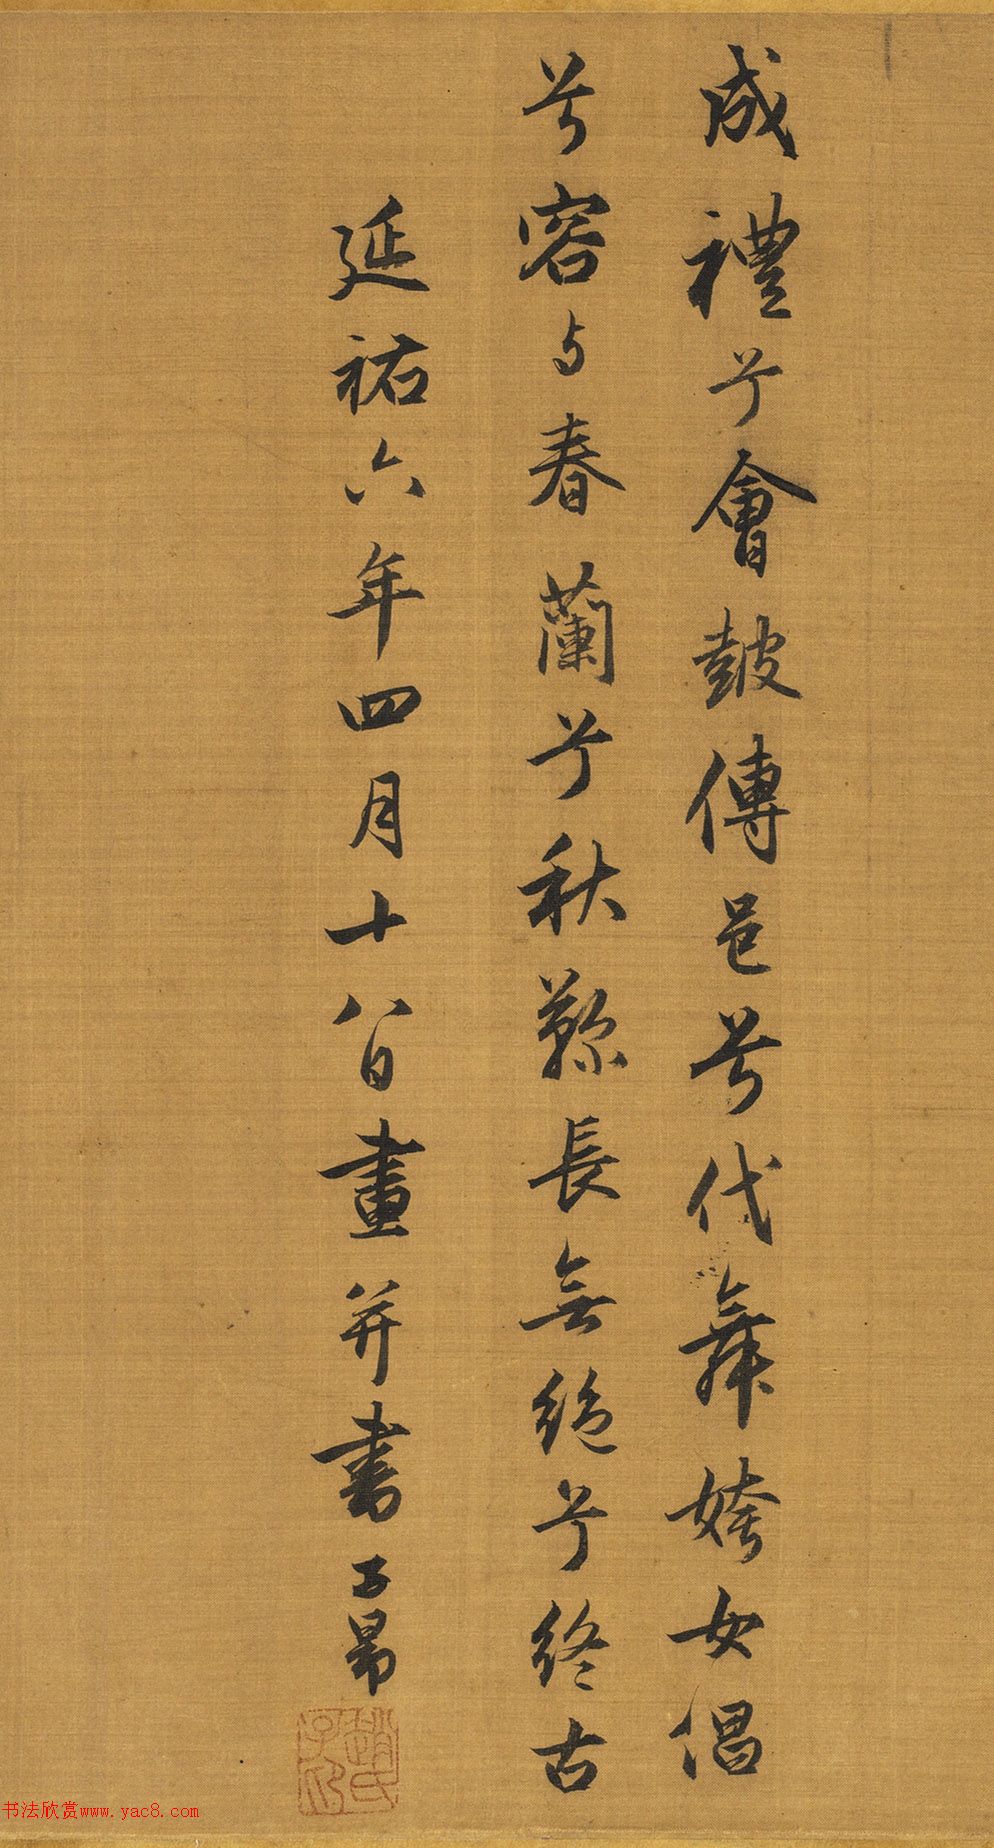 成禮兮會鼓傳邑兮代舞姱女倡
兮容与春蘭兮秋鞠長無絕兮終古
延祐六年四月十八日畫并書子昂
趙氏子昂
书法欣赏www.yac8.com